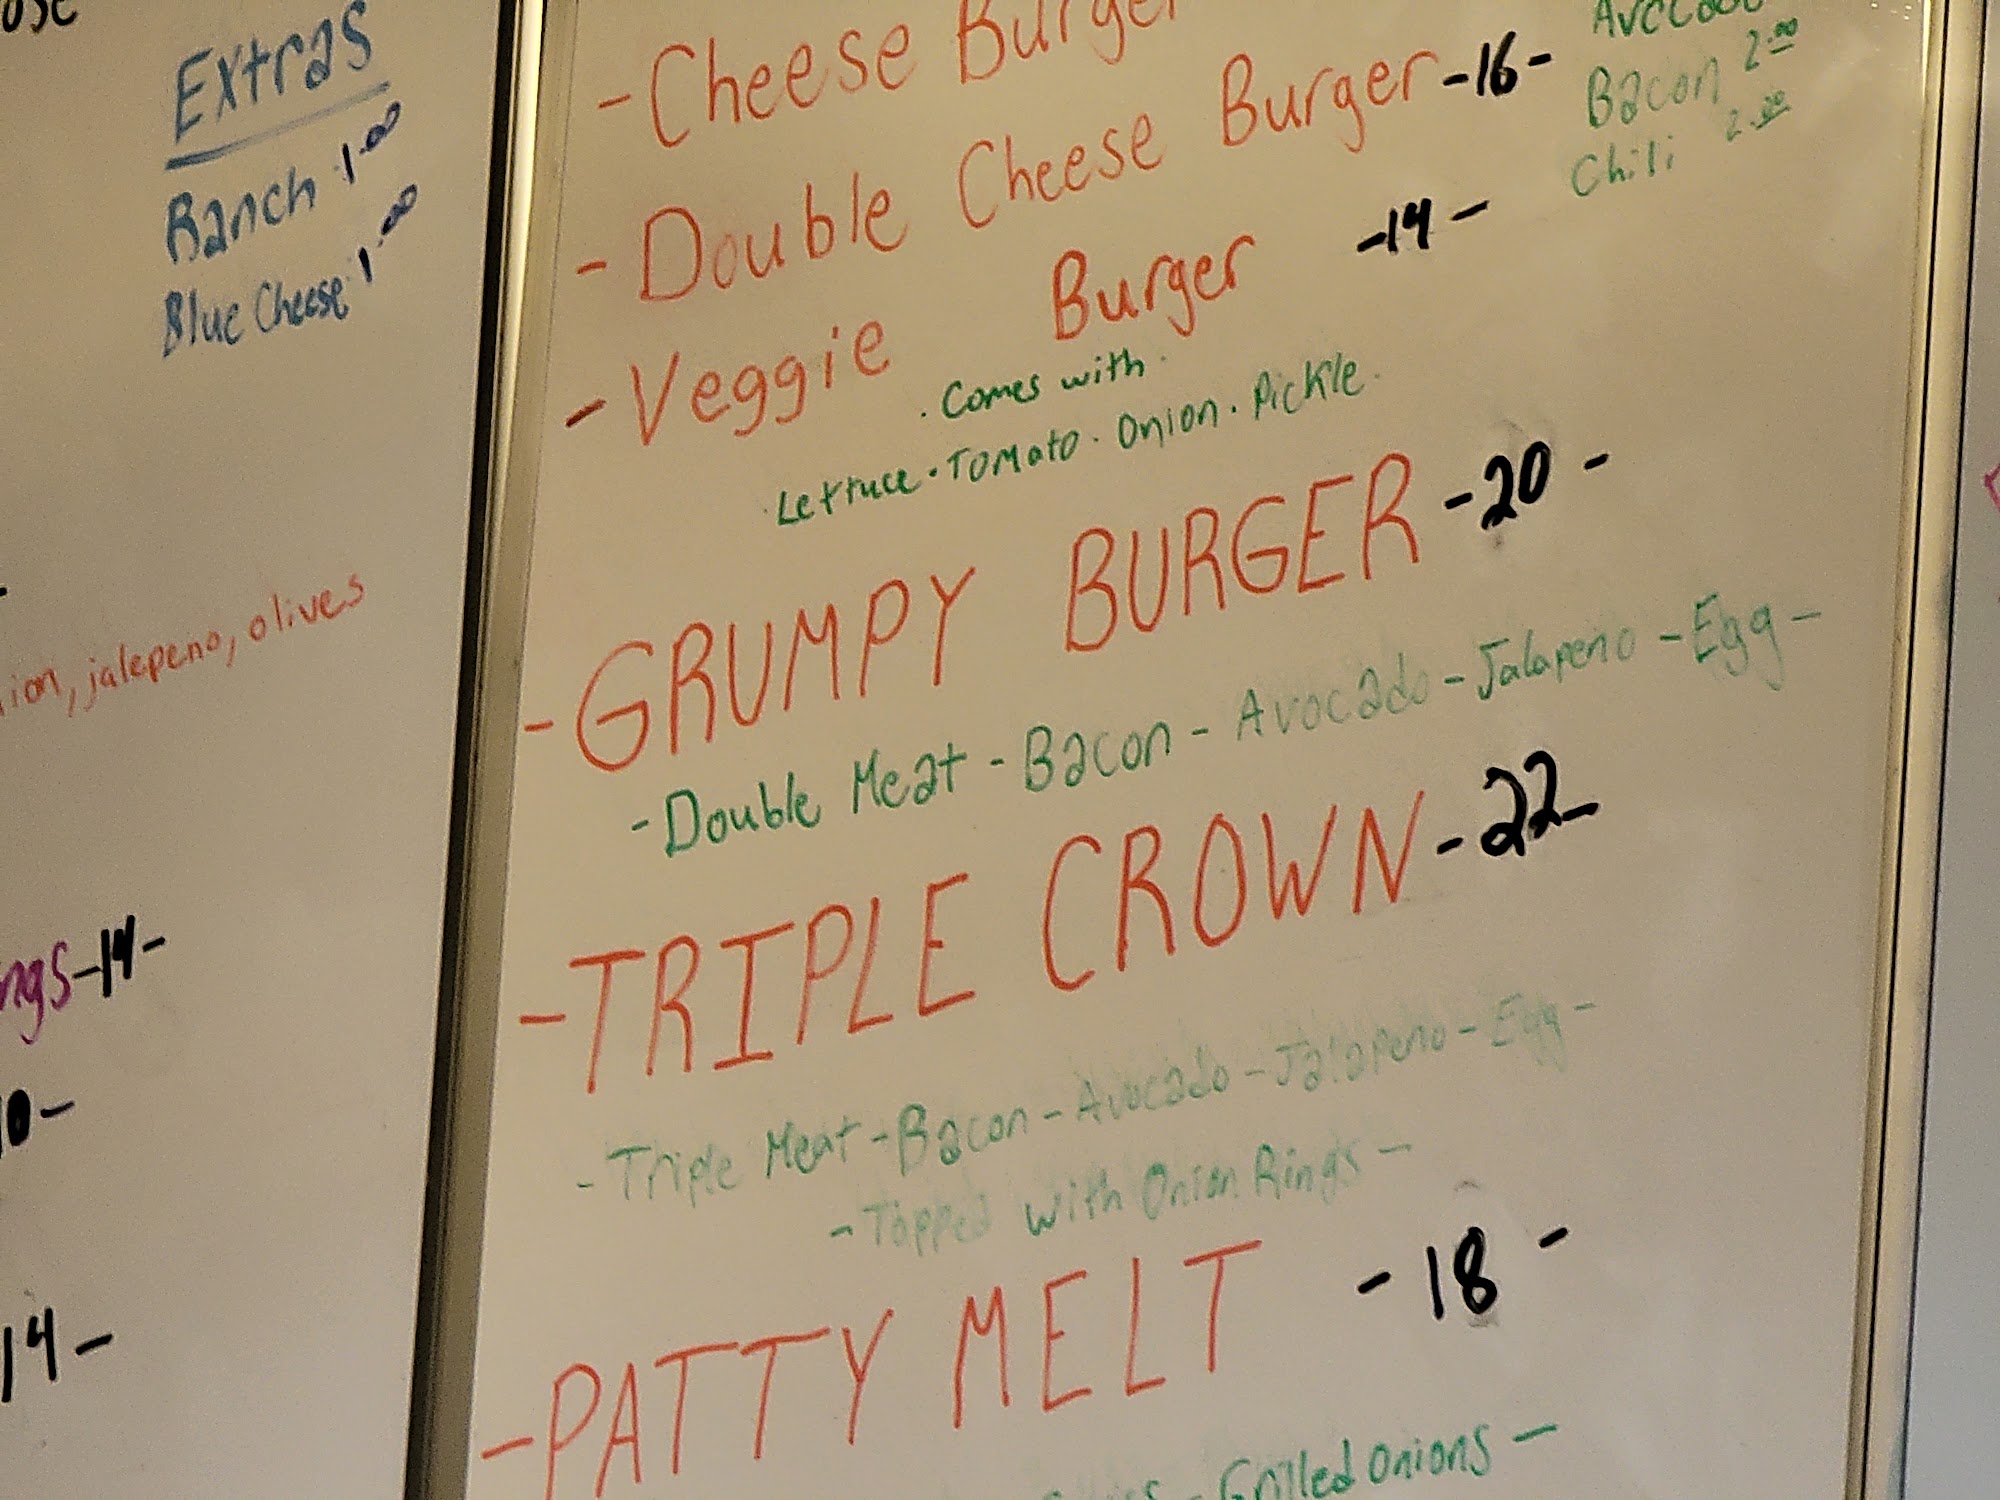 Extras
Ranch 1.00
Blue Cheese 1.00
jalepeno, olives
-14-
14-
- Cheese Burger
- Double Cheese Burger -16-
- Veggie Burger -14-
. Comes with .
. Lettuce . Tomato . Onion . Pickle .
- GRUMPY BURGER -20-
- Double Meat - Bacon - Avocado - Jalapeno - Egg -
- TRIPLE CROWN -22-
- Triple Meat - Bacon - Avocado - Jalapeno - Egg -
- Topped with Onion Rings -
- PATTY MELT -18-
- Grilled Onions -
Avocado
Bacon 2.00
Chili 2.00